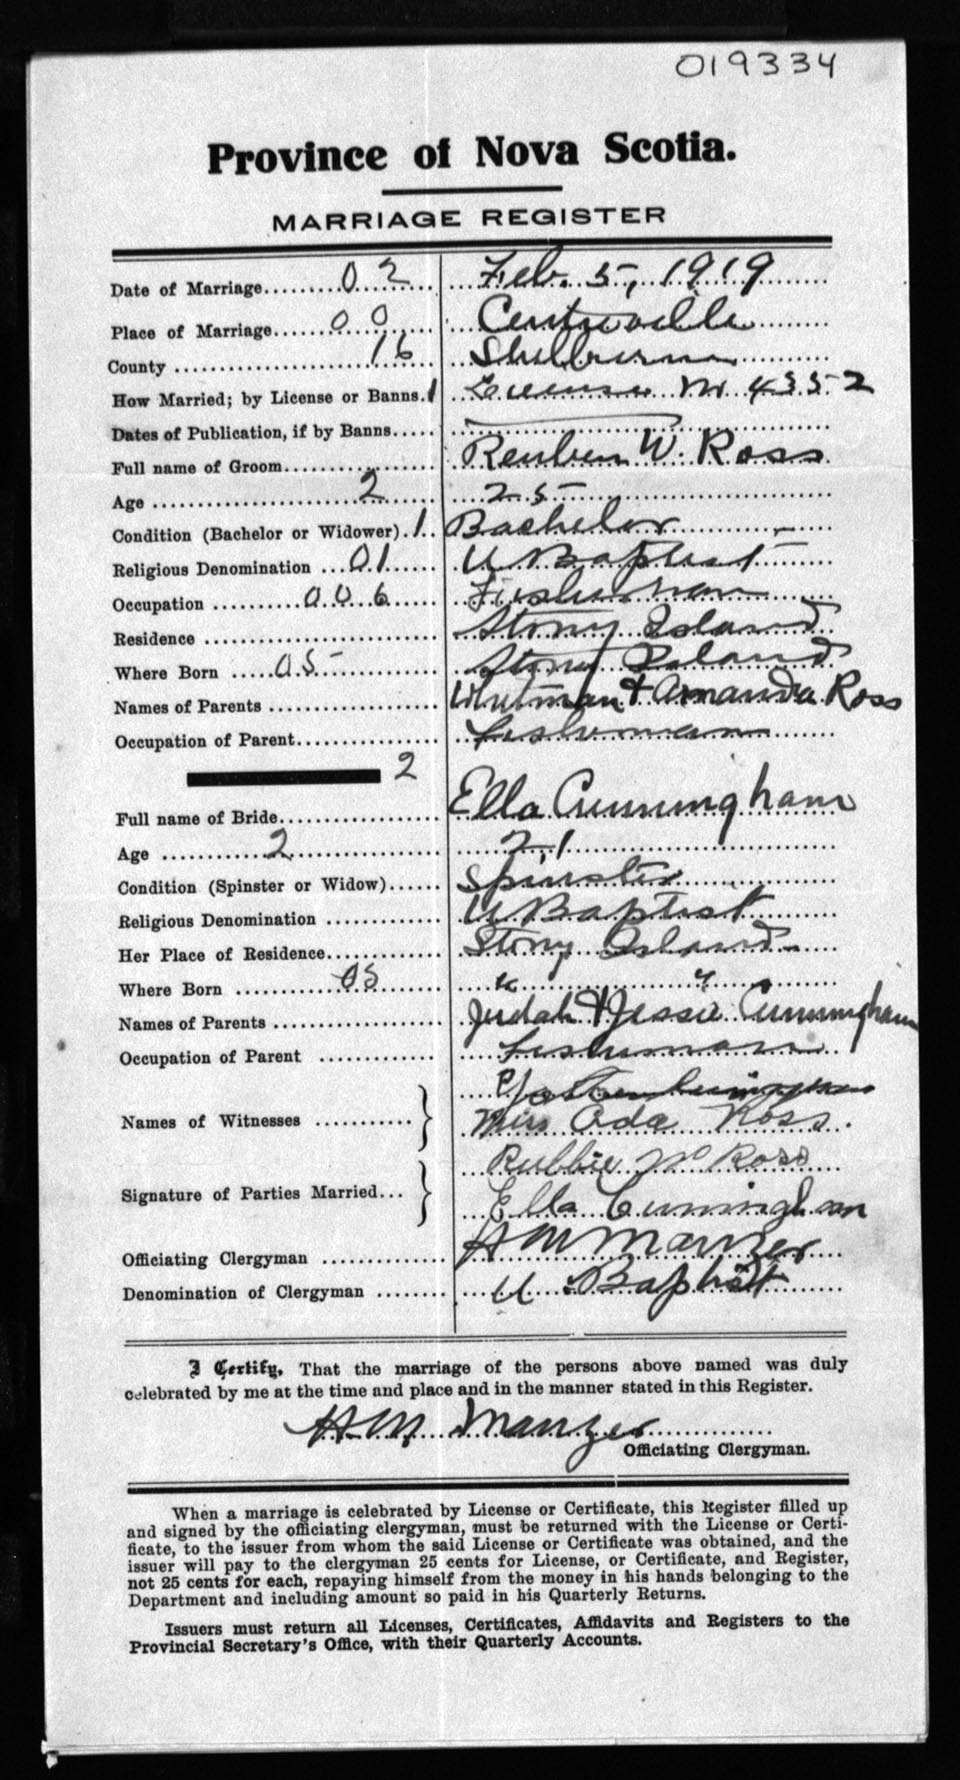 019334
Province of Nova Scotia.
MARRIAGE REGISTER
Date of Marriage 02 Feb. 5, 1919
Place of Marriage 00 Centreville
County 16 Shelburne
How Married; by License or Banns. 1 License No 4352
Dates of Publication, if by Banns
Full name of Groom Reuben W. Ross
Age 2 25
Condition (Bachelor or Widower). 1 Bachelor
Religious Denomination 01 U Baptist
Occupation 006 Fisherman
Residence Stony Island
Where Born 05 Stony Island
Names of Parents Whitman & Amanda Ross
Occupation of Parent Fisherman
2
Full name of Bride Ella Cunningham
Age 2 21
Condition (Spinster or Widow) Spinster
Religious Denomination U Baptist
Her Place of Residence Stony Island
Where Born 05 " "
Names of Parents Judah & Jessie Cunningham
Occupation of Parent Fisherman
Names of Witnesses Cunningham
Miss Ada Ross.
Signature of Parties Married Rubbie Ross
Ella Cunningham
Officiating Clergyman H M Manzer
Denomination of Clergyman U Baptist
I Certify, That the marriage of the persons above named was duly
celebrated by me at the time and place and in the manner stated in this Register.
H.M. Manzer
Officiating Clergyman.
When a marriage is celebrated by License or Certificate, this Register filled up
and signed by the officiating clergyman, must be returned with the License or Certi-
ficate, to the issuer from whom the said License or Certificate was obtained, and the
issuer will pay to the clergyman 25 cents for License, or Certificate, and Register,
not 25 cents for each, repaying himself from the money in his hands belonging to the
Department and including amount so paid in his Quarterly Returns.
Issuers must return all Licenses, Certificates, Affidavits and Registers to the
Provincial Secretary's Office, with their Quarterly Accounts.